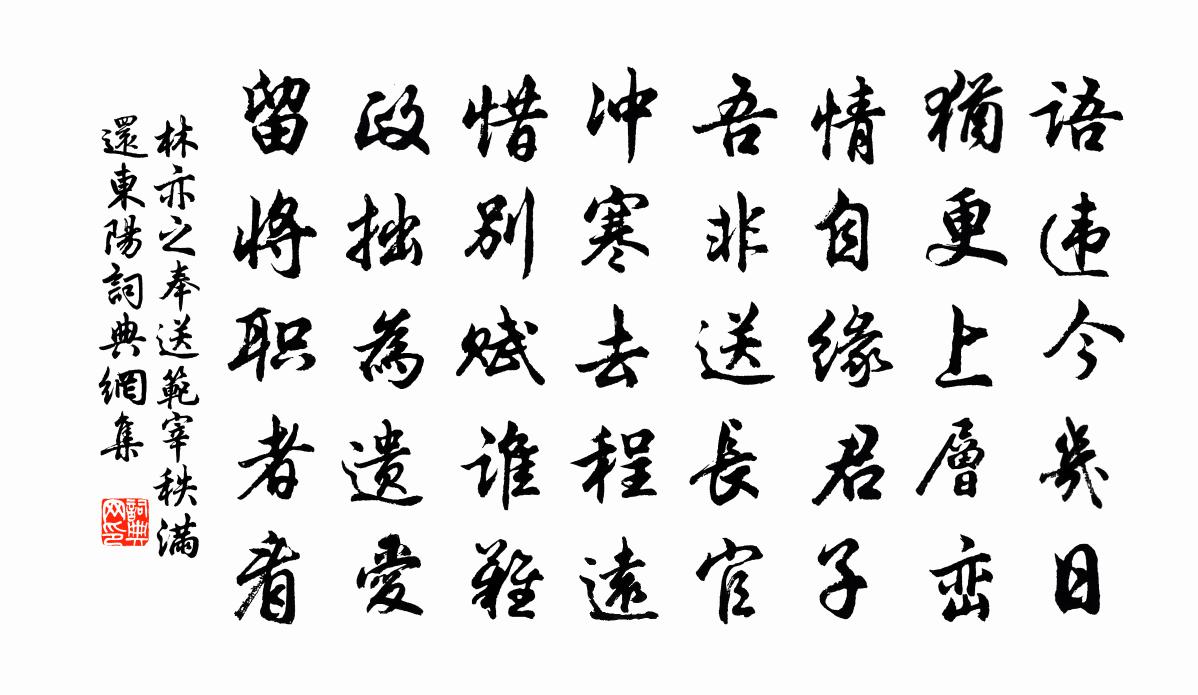 語违今幾日
猶更上層峦
情自缘君子
吾非送長官
冲寒去程遠
惜别赋谁難
政拙為遗愛
留将职者看
林亦之奉送範宰秩满
還東陽詞典網集
詞典网印